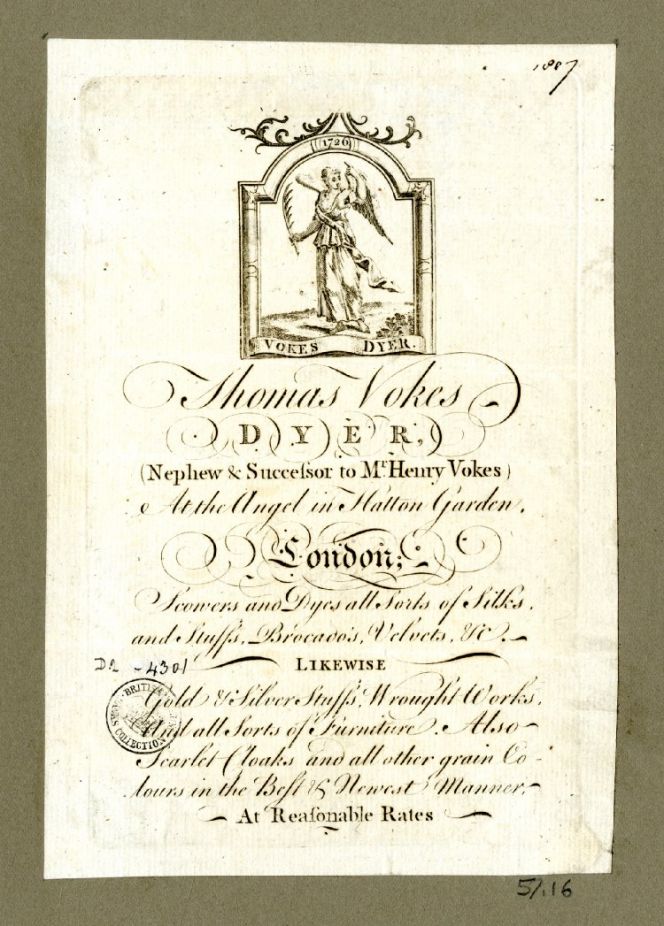 1807
1726
VOKES DYER.
Thomas Vokes
DYER,
(Nephew & Succeſsor to Mr. Henry Vokes)
At the Angel in Hatton Garden,
London;
Scowers and Dyes all Sorts of Silks,
and Stuffs, Brocado's, Velvets, &c.
LIKEWISE
D,2 -4301
Gold & Silver Stuffs, Wrought Works,
And all Sorts of Furniture. Also
Scarlet Cloaks and all other grain Co-
lours in the Beſt & Newest Manner,
At Reaſonable Rates
57.16